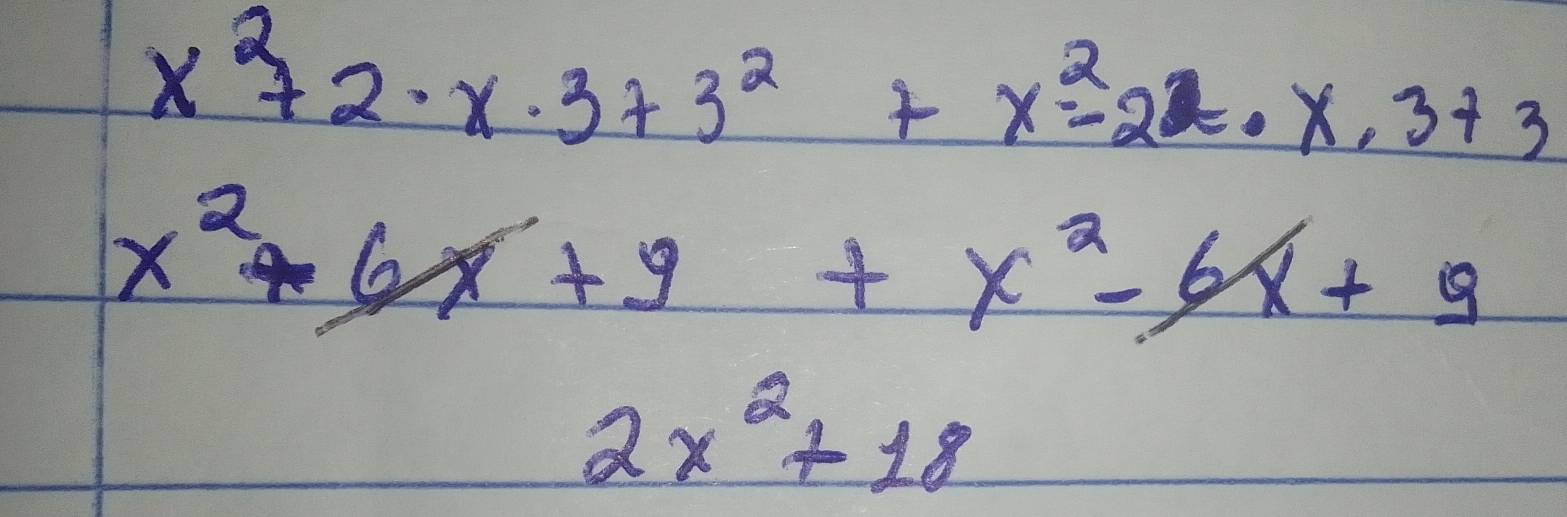 x² + 2 · x · 3 + 3² + x² - 2 · x . 3 + 3
x² + 6x + 9 + x² - 6x + 9
2x² + 18